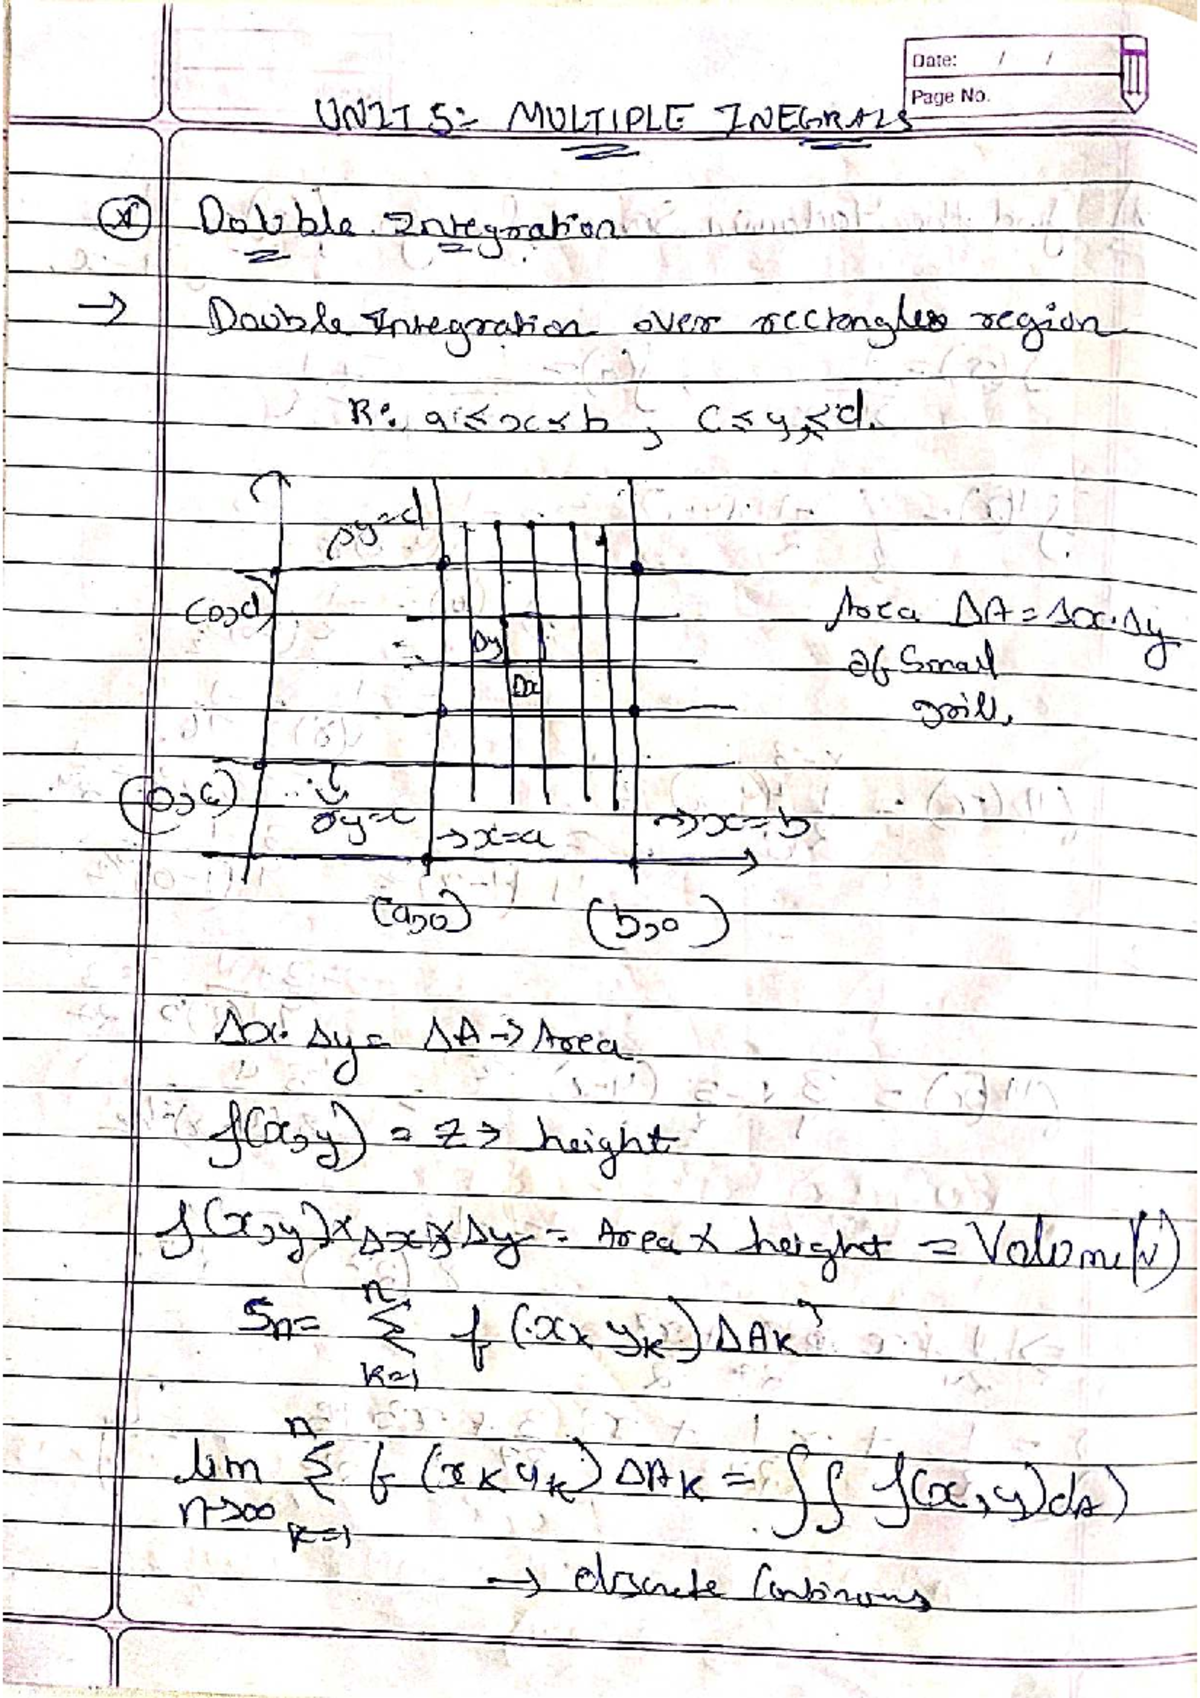 Date: / /
Page No.
UNIT 5:- MULTIPLE INEGRALS
Double Integration
→ Double Integration over rectangles region
R: a ≤ x ≤ b , c ≤ y ≤ d.
y=d
(0,d)
Area ΔA = Δx.Δy
of Small
grill.
Δy
Δx
(0,c)
y=c
→x=a
→x=b
(a,0) (b,0)
Δx. Δy = ΔA → Area
f(x,y) = z → height
f(x,y) × Δx × Δy = Area × height = Volume (v)
Sn = n Σ k=1 f(xk yk) ΔAk
lim n→∞ n Σ k=1 f(xk yk) ΔAk = ∫∫ f(x,y) dA)
→ discrete Continous